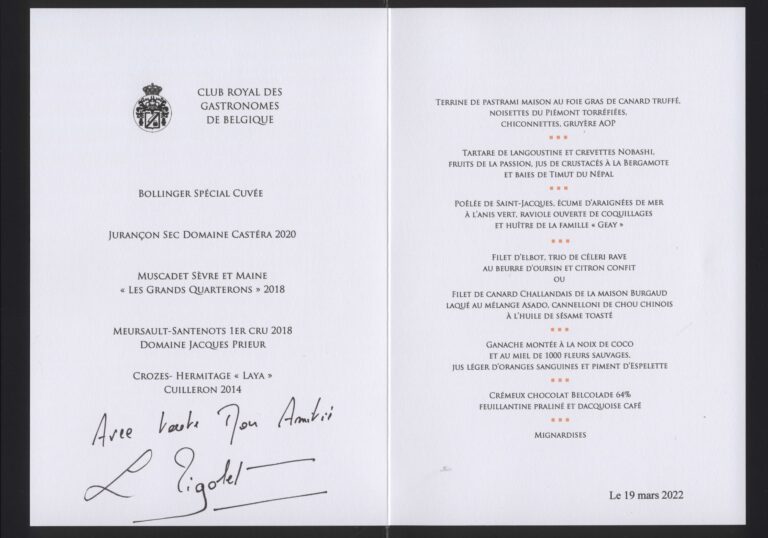 CLUB ROYAL DES
GASTRONOMES
DE BELGIQUE
BOLLINGER SPÉCIAL CUVÉE
JURANÇON SEC DOMAINE CASTÉRA 2020
MUSCADET SÈVRE ET MAINE
« LES GRANDS QUARTERONS » 2018
MEURSAULT-SANTENOTS 1ER CRU 2018
DOMAINE JACQUES PRIEUR
CROZES- HERMITAGE « LAYA »
CUILLERON 2014
Avec toute Mon Amitié
L Rigolet
TERRINE DE PASTRAMI MAISON AU FOIE GRAS DE CANARD TRUFFÉ,
NOISETTES DU PIÉMONT TORRÉFIÉES,
CHICONNETTES, GRUYÈRE AOP
TARTARE DE LANGOUSTINE ET CREVETTES NOBASHI,
FRUITS DE LA PASSION, JUS DE CRUSTACÉS À LA BERGAMOTE
ET BAIES DE TIMUT DU NÉPAL
POÊLÉE DE SAINT-JACQUES, ÉCUME D'ARAIGNÉES DE MER
À L'ANIS VERT, RAVIOLE OUVERTE DE COQUILLAGES
ET HUÎTRE DE LA FAMILLE « GEAY »
FILET D'ELBOT, TRIO DE CÉLERI RAVE
AU BEURRE D'OURSIN ET CITRON CONFIT
OU
FILET DE CANARD CHALLANDAIS DE LA MAISON BURGAUD
LAQUÉ AU MÉLANGE ASADO, CANNELLONI DE CHOU CHINOIS
À L'HUILE DE SÉSAME TOASTÉ
GANACHE MONTÉE À LA NOIX DE COCO
ET AU MIEL DE 1000 FLEURS SAUVAGES,
JUS LÉGER D'ORANGES SANGUINES ET PIMENT D'ESPELETTE
CRÉMEUX CHOCOLAT BELCOLADE 64%
FEUILLANTINE PRALINÉ ET DACQUOISE CAFÉ
MIGNARDISES
Le 19 mars 2022